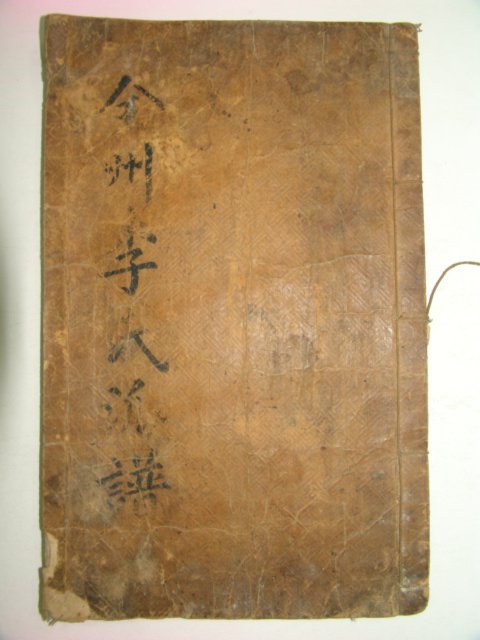 全州李氏派譜